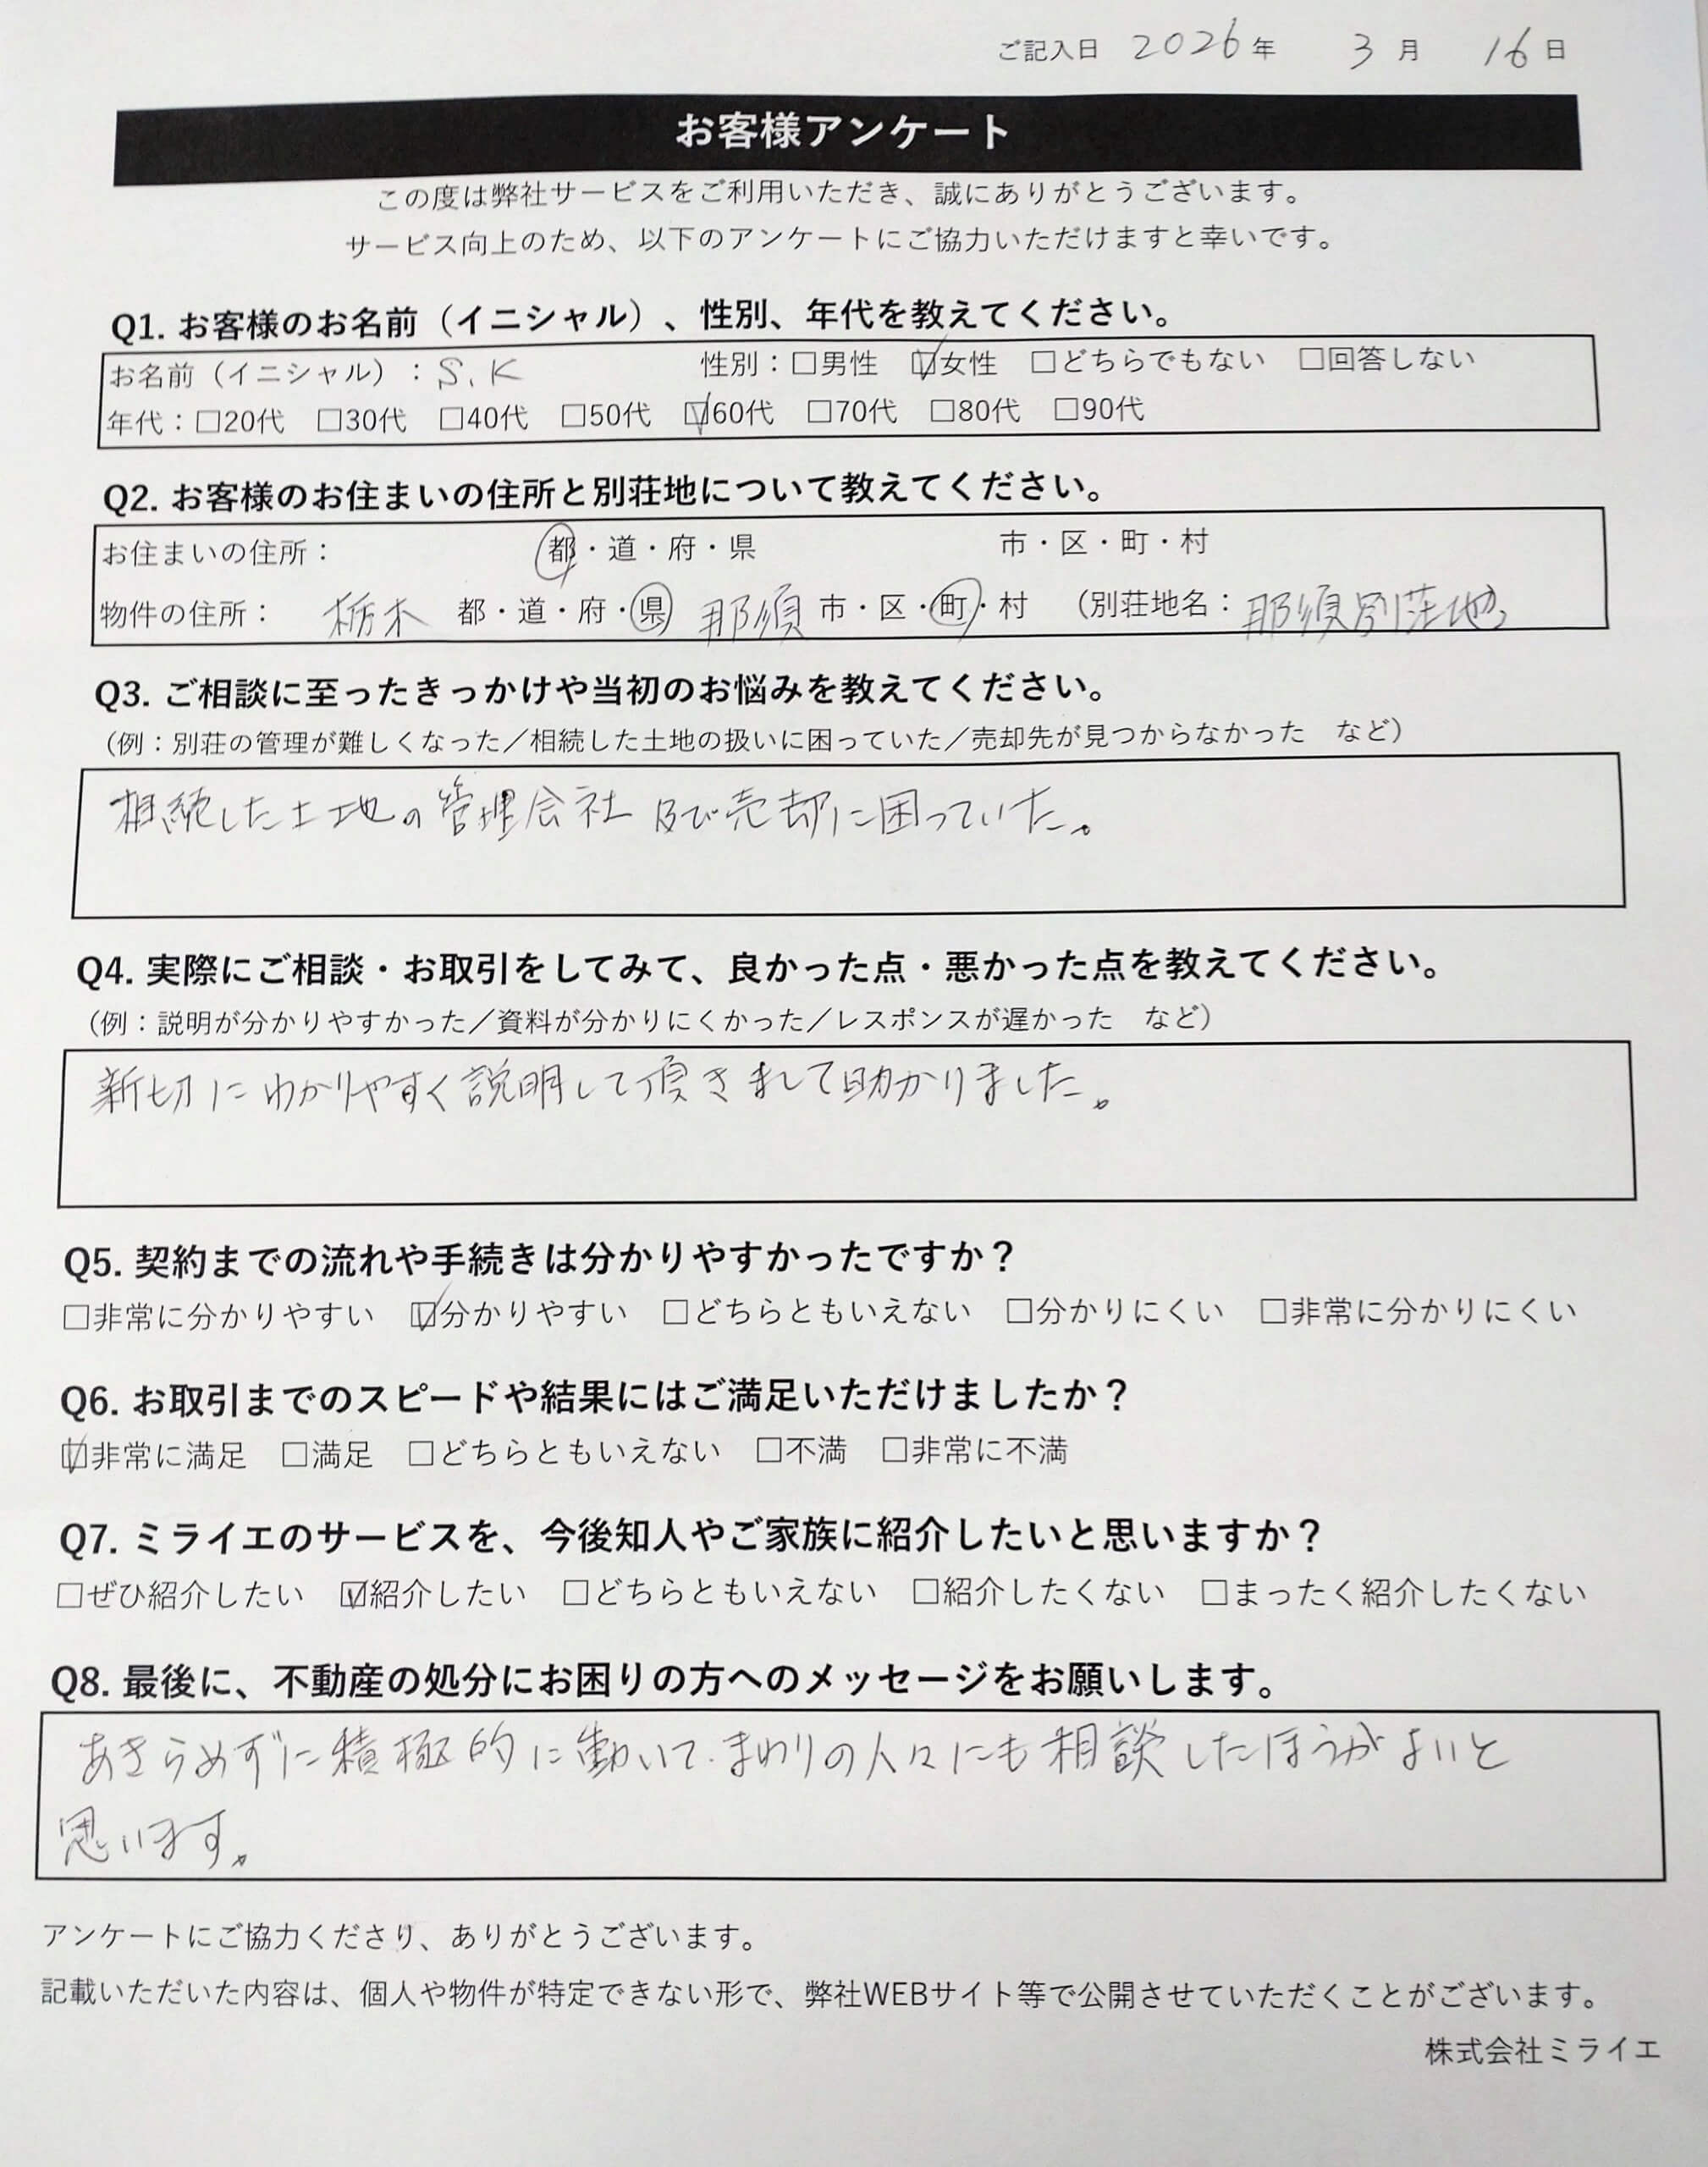 ご記入日 2026年 3月 16日
お客様アンケート
この度は弊社サービスをご利用いただき、誠にありがとうございます。
サービス向上のため、以下のアンケートにご協力いただけますと幸いです。
Q1. お客様のお名前（イニシャル）、性別、年代を教えてください。
お名前（イニシャル）：S.K 性別：□男性 ☑女性 □どちらでもない □回答しない
年代：□20代 □30代 □40代 □50代 ☑60代 □70代 □80代 □90代
Q2. お客様のお住まいの住所と別荘地について教えてください。
お住まいの住所： 都・道・府・県 市・区・町・村
物件の住所： 栃木 都・道・府・県 那須 市・区・町・村 （別荘地名：那須別荘地
Q3. ご相談に至ったきっかけや当初のお悩みを教えてください。
（例：別荘の管理が難しくなった／相続した土地の扱いに困っていた／売却先が見つからなかった など）
相続した土地の管理会社及び売却に困っていた。
Q4. 実際にご相談・お取引をしてみて、良かった点・悪かった点を教えてください。
（例：説明が分かりやすかった／資料が分かりにくかった／レスポンスが遅かった など）
新切にわかりやすく説明して頂きまして助かりました。
Q5. 契約までの流れや手続きは分かりやすかったですか？
□非常に分かりやすい ☑分かりやすい □どちらともいえない □分かりにくい □非常に分かりにくい
Q6. お取引までのスピードや結果にはご満足いただけましたか？
☑非常に満足 □満足 □どちらともいえない □不満 □非常に不満
Q7. ミライエのサービスを、今後知人やご家族に紹介したいと思いますか？
□ぜひ紹介したい ☑紹介したい □どちらともいえない □紹介したくない □まったく紹介したくない
Q8. 最後に、不動産の処分にお困りの方へのメッセージをお願いします。
あきらめずに積極的に働いて、まわりの人々にも相談したほうがよいと
思います。
アンケートにご協力くださり、ありがとうございます。
記載いただいた内容は、個人や物件が特定できない形で、弊社WEBサイト等で公開させていただくことがございます。
株式会社ミライエ